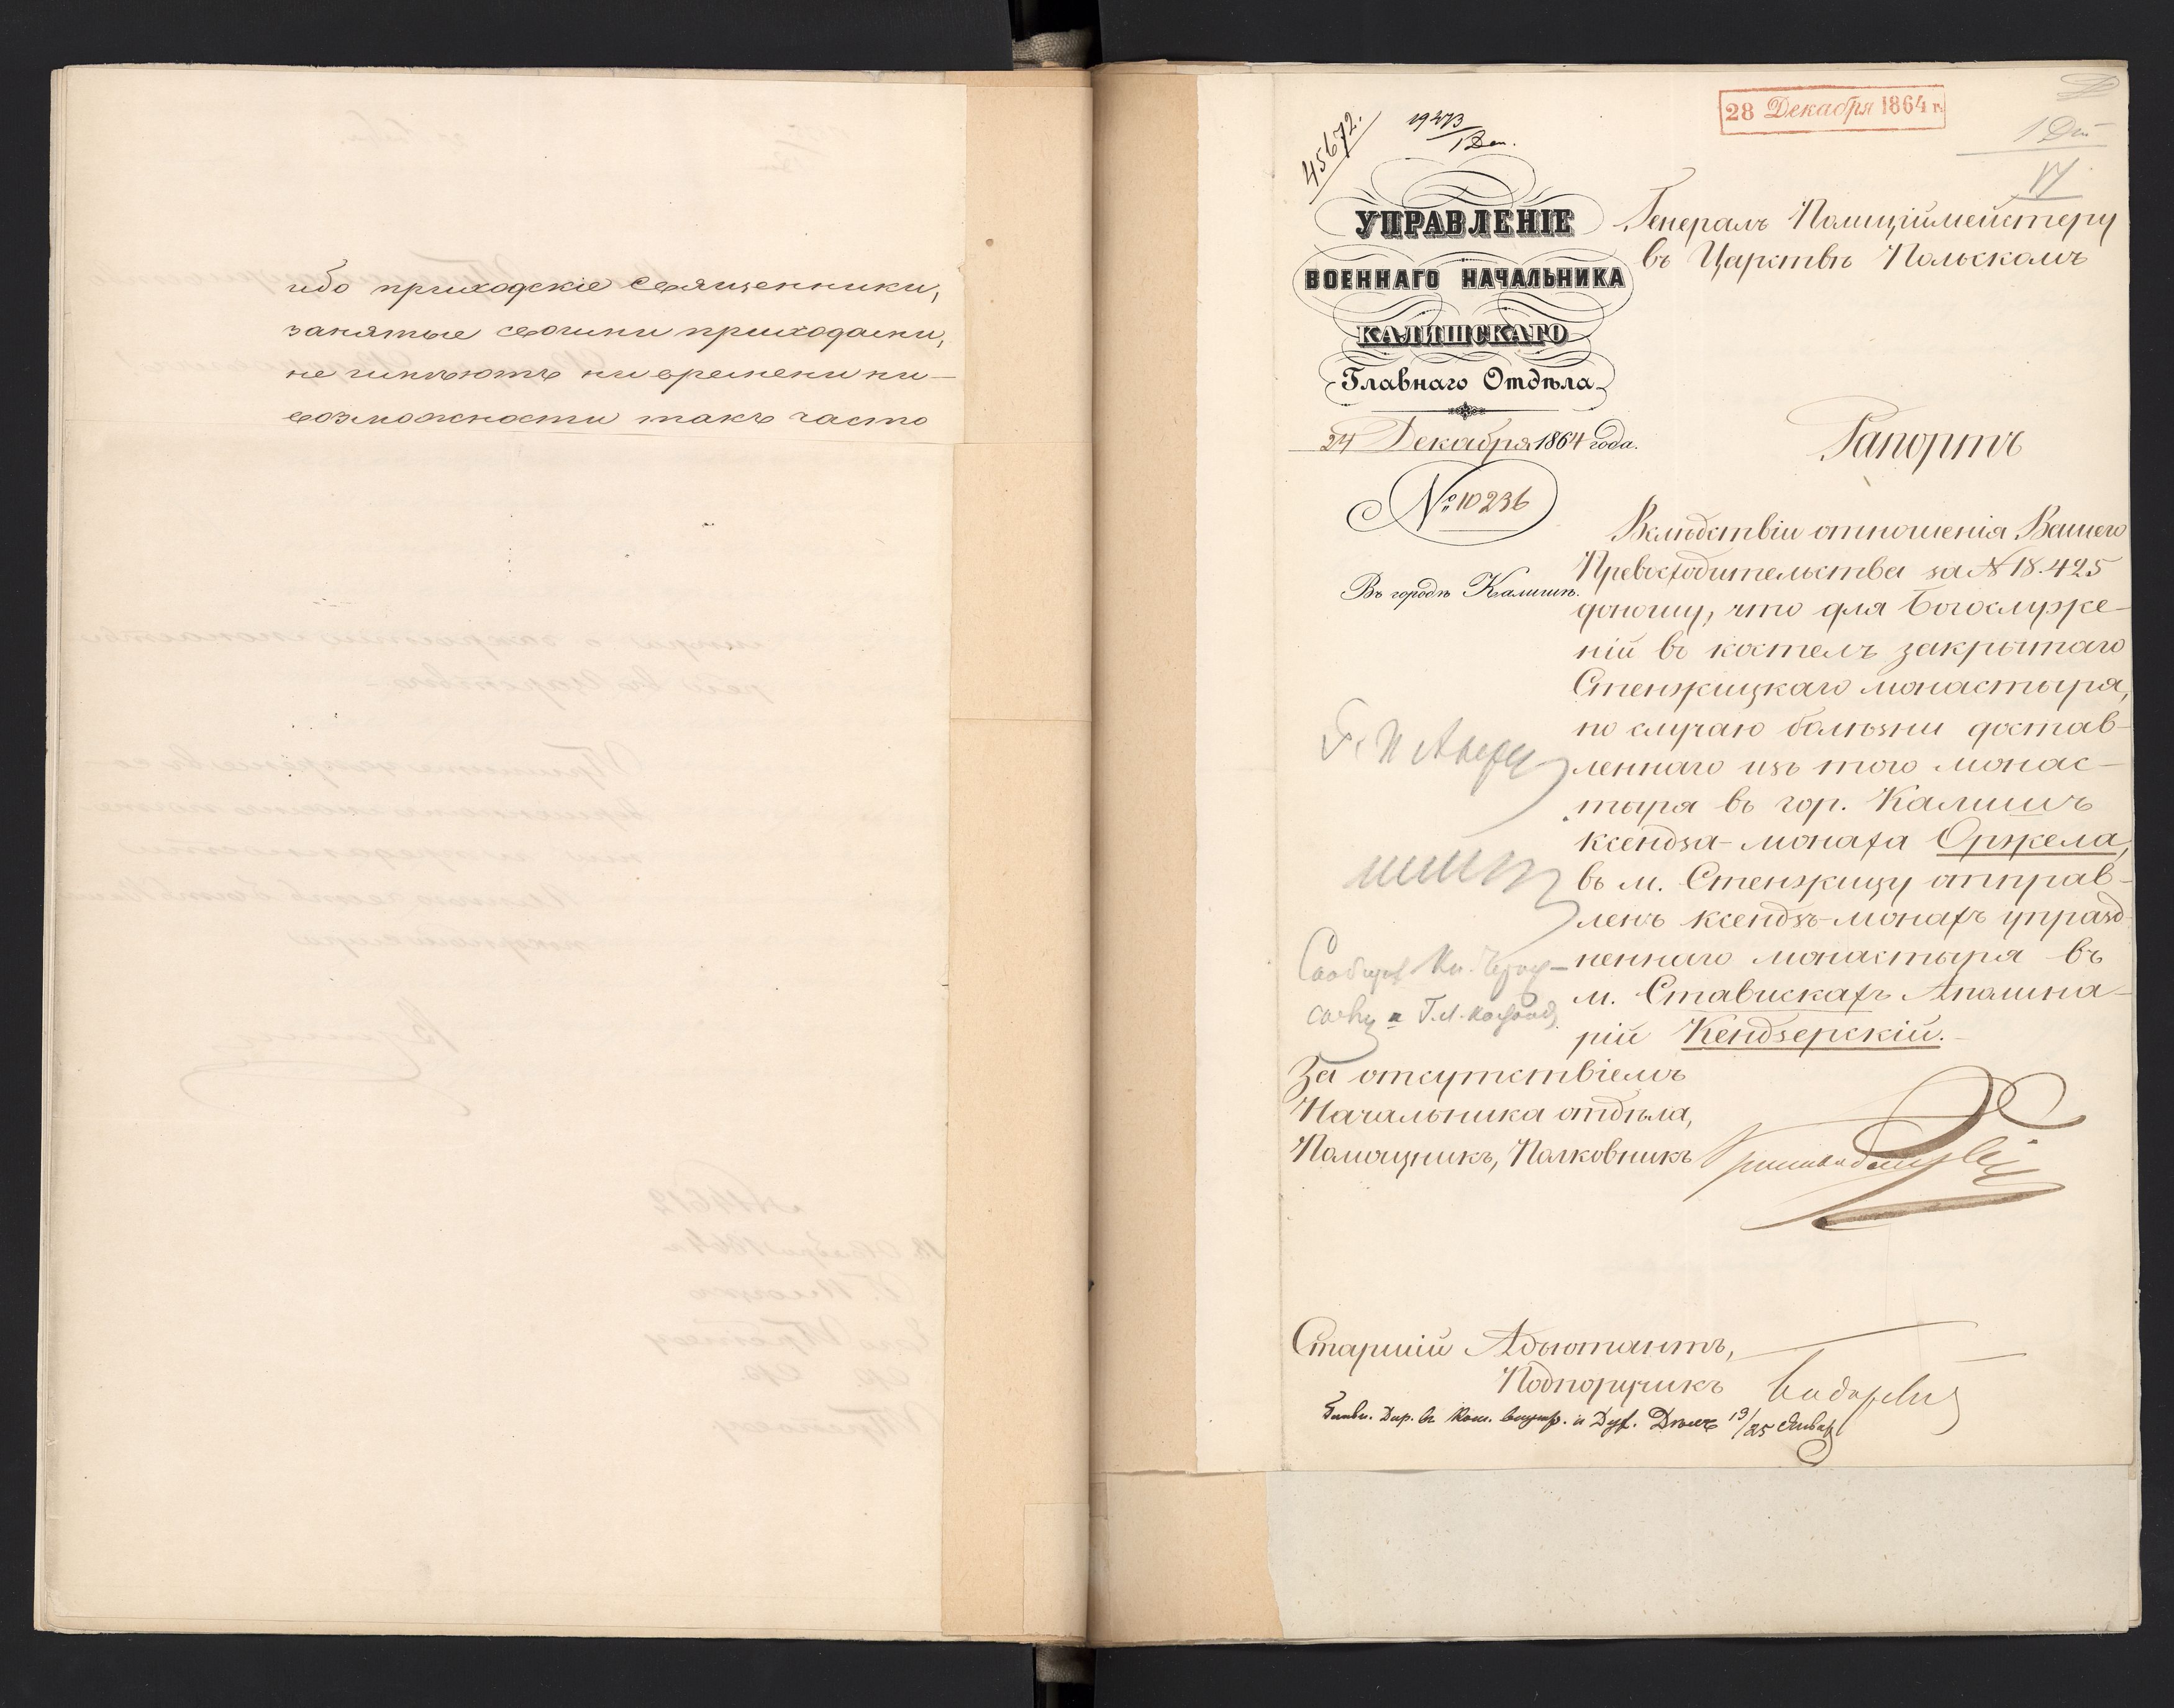 ибо приходскіе священники,
занятые своими приходами,
не имѣютъ ни времени ни
возможности такъ часто
28 Декабря 1864 г.
45672.
19473
1 Ден.
VI
УПРАВЛЕНІЕ
ВОЕННАГО НАЧАЛЬНИКА
КАЛИШСКАГО
Главнаго Отдѣла
24 Декабря 1864 года.
№ 10236
Въ городѣ Калишѣ.
Генералъ Полиціймейстеру
въ Царствѣ Польскомъ
Рапортъ
Вслѣдствіи отношенія Вашего
Превосходительства за № 18.425
доношу, что для Богослуже-
ній въ костелъ закрытаго
Стенжицкаго монастыря,
по случаю болѣзни достав-
леннаго изъ того монас-
тыря въ гор. Калишъ
ксендза-монаха Оржела,
въ м. Стенжицу отправ-
ленъ ксендзъ-монахъ упразд-
неннаго монастыря въ
м. Ставискахъ Аполина-
рій Кендзерскій.
За отсутствіемъ
Начальника отдѣла,
Помощникъ, Полковникъ
Старшій Адъютантъ,
Подпоручикъ
Дир. Ком. Внутр. и Дух. Дѣлъ 13/25 Январ